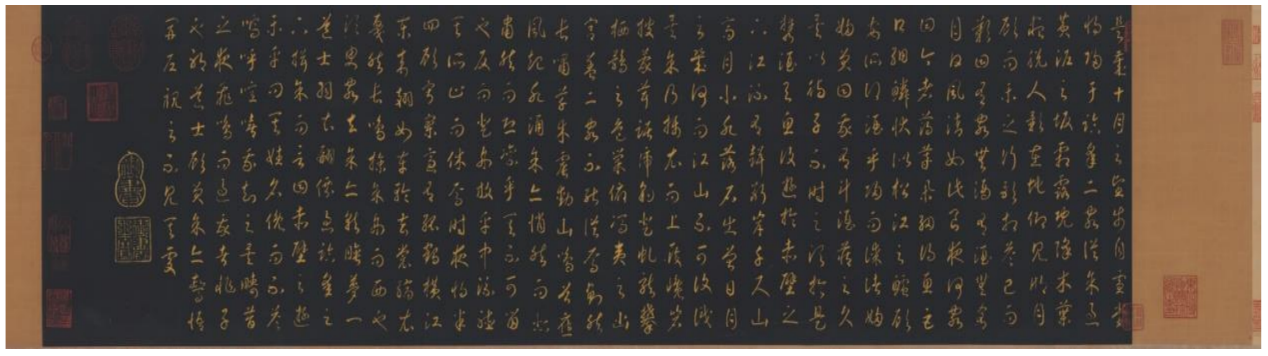 是歲十月之望步自雪堂
將歸于臨皋二客從予過
黃泥之坂霜露既降木葉
盡脫人影在地仰見明月
顧而樂之行歌相答已而
歎曰有客無酒有酒無肴
月白風清如此良夜何客
曰今者薄暮舉網得魚巨
口細鱗狀似松江之鱸顧
安所得酒乎歸而謀諸婦
婦曰我有斗酒藏之久
矣以待子不時之須於是
攜酒與魚復遊於赤壁之
下江流有聲斷岸千尺山
高月小水落石出曾日月
之幾何而江山不可復識
矣予乃攝衣而上履巉巖
披蒙茸踞虎豹登虬龍攀
栖鶻之危巢俯馮夷之幽
宮蓋二客不能從焉劃然
長嘯草木震動山鳴谷應
風起水涌予亦悄然而悲
肅然而恐凜乎其不可留
也反而登舟放乎中流聽
其所止而休焉時夜將半
四顧寂寥適有孤鶴橫江
東來翅如車輪玄裳縞衣
戛然長鳴掠予舟而西也
須臾客去予亦就睡夢一
道士羽衣翩僊過臨皋之
下揖予而言曰赤壁之遊
樂乎問其姓名俛而不答
嗚呼噫嘻我知之矣疇昔
之夜飛鳴而過我者非子
也邪道士顧笑予亦驚悟
開戶視之不見其處